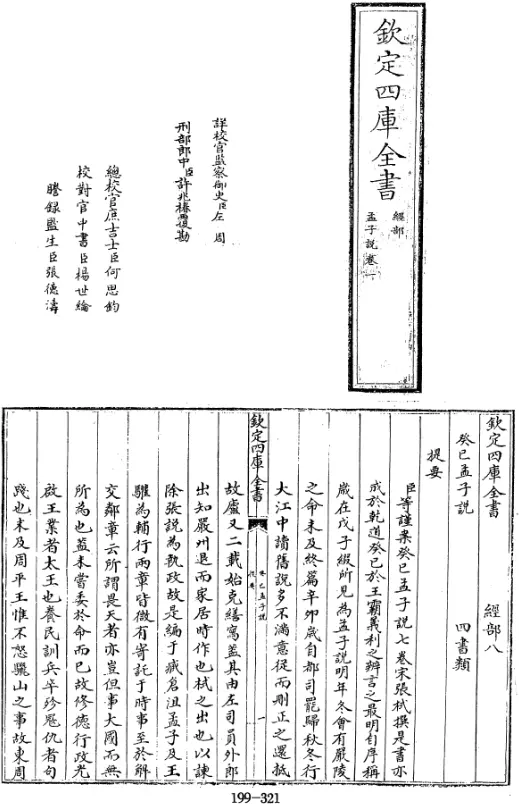 欽定四庫全書
經部
孟子說卷一
詳校官監察御史臣左周
刑部郎中臣許兆椿覆勘
總校官庶吉士臣何思鈞
校對官中書臣楊世綸
謄錄監生臣張德濤
欽定四庫全書
經部八
癸巳孟子說
四書類
提要
臣等謹案癸巳孟子說七卷宋張栻撰是書亦
成於乾道癸巳於王霸義利之辨言之最明自序稱
歲在戊子綴所見為孟子說明年冬會有嚴陵
之命未及終篇辛卯歲自都司罷歸秋冬行
大江中讀舊說多不滿意從而刪正之還抵
欽定四庫全書
癸巳孟子說
提要
一
故廬又二載始克繕寫蓋其由左司員外郎
出知嚴州退而家居時作也栻之出也以諫
除張說為執政故是編于臧倉沮孟子及王
驩為輔行兩章皆微有寄託于時事至於解
交鄰章云所謂畏天者亦豈但事大國而無
所為也蓋未嘗委於命而已故修德行政光
啟王業者太王也養民訓兵卒殄寇仇者句
踐也末及周平王惟不怒驪山之事故東周
199-321